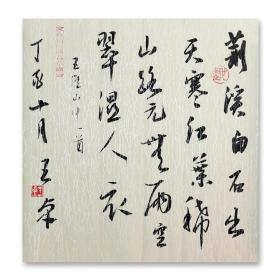 荆溪白石出
天寒红葉稀
山路元無雨空
翠湿人衣
王维山中一首
丁亥十月王